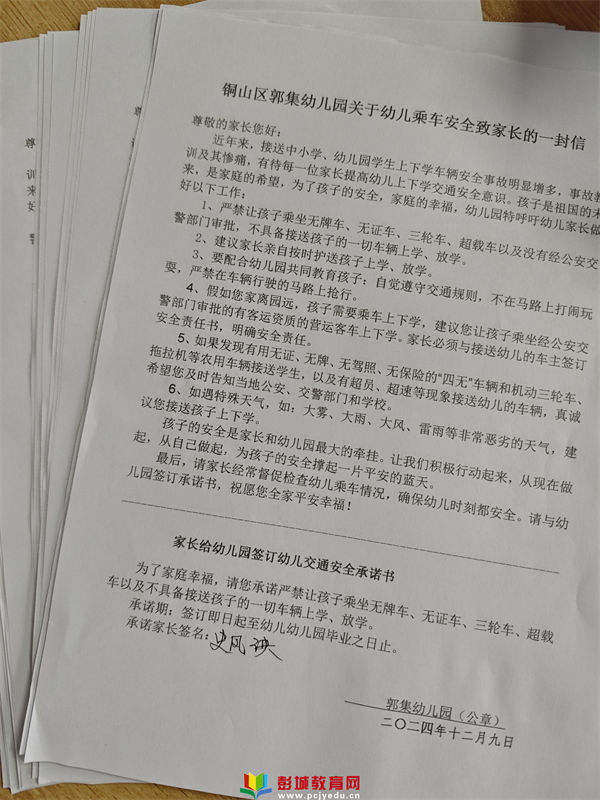 铜山区郭集幼儿园关于幼儿乘车安全致家长的一封信
尊敬的家长您好：
近年来，接送中小学、幼儿园学生上下学车辆安全事故明显增多，事故教
训及其惨痛，有待每一位家长提高幼儿上下学交通安全意识。孩子是祖国的未
来，是家庭的希望，为了孩子的安全，家庭的幸福，幼儿园特呼吁幼儿家长做
好以下工作：
1、严禁让孩子乘坐无牌车、无证车、三轮车、超载车以及没有经公安交
警部门审批，不具备接送孩子的一切车辆上学、放学。
2、建议家长亲自按时护送孩子上学、放学。
3、要配合幼儿园共同教育孩子：自觉遵守交通规则，不在马路上打闹玩
耍，严禁在车辆行驶的马路上抢行。
4、假如您家离园远，孩子需要乘车上下学，建议您让孩子乘坐经公安交
警部门审批的有客运资质的营运客车上下学。家长必须与接送幼儿的车主签订
安全责任书，明确安全责任。
5、如果发现有用无证、无牌、无驾照、无保险的“四无”车辆和机动三轮车、
拖拉机等农用车辆接送学生，以及有超员、超速等现象接送幼儿的车辆，真诚
希望您及时告知当地公安、交警部门和学校。
6、如遇特殊天气，如：大雾、大雨、大风、雷雨等非常恶劣的天气，建
议您接送孩子上下学。
孩子的安全是家长和幼儿园最大的牵挂。让我们积极行动起来，从现在做
起，从自己做起，为孩子的安全撑起一片平安的蓝天。
最后，请家长经常督促检查幼儿乘车情况，确保幼儿时刻都安全。请与幼
儿园签订承诺书，祝愿您全家平安幸福！
家长给幼儿园签订幼儿交通安全承诺书
为了家庭幸福，请您承诺严禁让孩子乘坐无牌车、无证车、三轮车、超载
车以及不具备接送孩子的一切车辆上学、放学。
承诺期：签订即日起至幼儿幼儿园毕业之日止。
承诺家长签名：史风
郭集幼儿园（公章）
二〇二四年十二月九日
尊
训
来
好
尊
彭城教育网
www.pcjyedu.cn